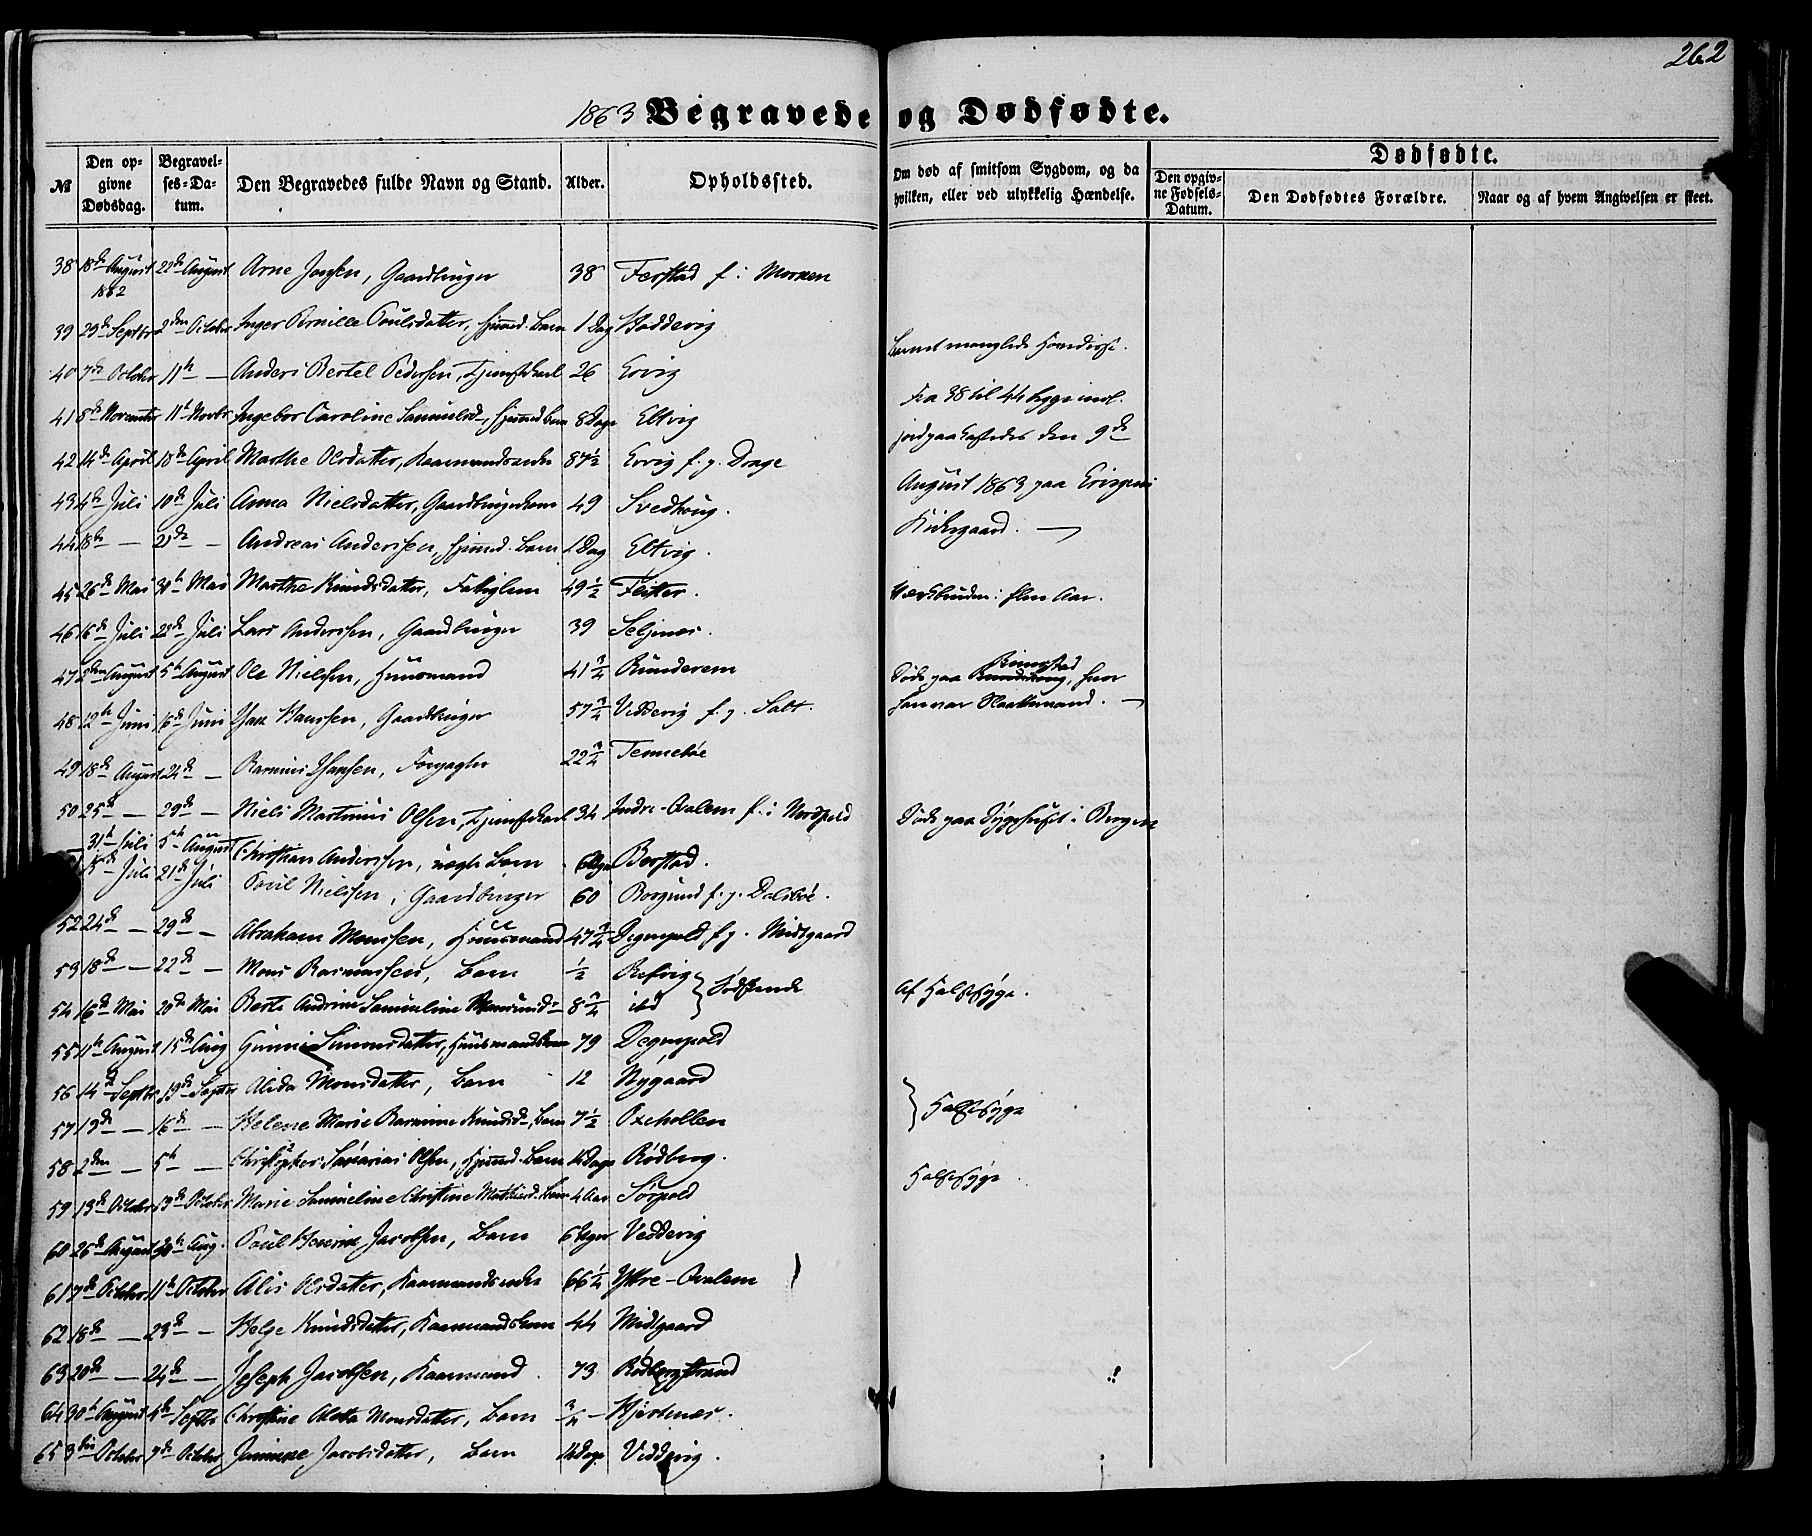 262
1863 Begravede og Dødfødte.
№ Den opgivne Dødsdag. Begravelses-Datum. Den Begravedes fulde Navn og Stand. Alder. Opholdssted. Om død af smitsom Sygdom, og da hvilken, eller ved ulykkelig Hændelse. Dødfødte.
Den opgivne Fødsels-Datum. Den Dødfødtes Forældre. Naar og af hvem Angivelsen er skeet.
38 18de August 1862 22de August Arne Jonsen, Gaardbruger 38 Færstad f. i
39 29de Septbr 2den October Inger Pernille Poulsdatter, Barn 1 Dag Hoddevig
Barnet manglede
40 7de October 11te — Anders Bertel Pedersen, Tjenestekarl 26 Ervig
Fra 38 til 44 begge incl.
41 5te November 11te Novbr Ingebor Caroline Samuelsd., Barn 8 Dage Eltvig
jordpaakastedes den 9de
42 14de April 18de April Marthe Olsdatter, Kaarmandsenke 87½ Ervig f. p. Drage
August 1863 paa Ervigens
43 4de Juli 10de Juli Anna Nielsdatter, Gaardbrugerkone 49
Kirkegaard. —
44 18de — 21de — Andreas Andersen, Barn 1 Dag Eltvig.
45 26de Mai 30te Mai Marthe Knudsdatter, Fattiglem 49½ Flister.
Værkbruden i flere Aar.
46 16de Juli 22de Juli Lars Andersen, Gaardbruger 39 Seljenæs.
47 2den August 5te August Ole Nielsen, Huusmand 41¾ Runderem
Døde paa Rimstad, hvor
48 12te Juni 16de Juni Hans Hansen, Gaardbruger 57¾ Vedvig f. p. Salt.
han var Slaattemand. —
49 18de August 24de — Rasmus Hansen, Forpagter 22¾ Tennebøe
50 25de — 29de — Niels Martinus Olsen, Tjenestekarl 34 Indre-Qvalem f. i Nordpold
Døde paa Sygehuset i Bergen
31te Juli 5te August Christian Andersen, uægte Barn 6 Uger Berstad.
15de Juli 21de Juli Poul Nielsen, Gaardbruger 60 Borgund f. p. Dalsbøe.
52 24de — 29de — Abraham Monssen, Huusmand 47¾ Degnepold f. p. Midtgaard
53 18de — 22de — Mons Rasmussen, Barn ½ Refvig } Sødskende
54 16de Mai 20de Mai Berte Andrine Samueline 8¾ ibd
Af Halssyge.
55 11te August 15de Aug Simonsdatter, Huusmandskone 79 Degnepold
56 14de Septbr 19de Septbr Alida Monsdatter, Barn 12 Nygaard
57 13de — 16de — Helene Marie Rasmine Knudsd., Barn 7½ Oxeholten
} Halssyge
58 2den — 5te — Christopher Sakarias Olsen, Barn 14 Dage Rødberg.
59 13de October 19de October Marie Samueline Christine Barn 4 Aar Sørpold
Halssyge.
60 26de August 30te Aug. Poul Henrik Jacobsen, Barn 6 Uger Vedvig
61 7de October 11te October Alis Olsdatter, Kaarmandsenke 66¼ Ytre-Qvalem
62 18de — 23de — Helge Knudsdatter, Kaarmandskone 44 Midtgaard
63 20de — 24de — Joseph Jacobsen, Kaarmand. 73 Rødbergstrand
64 30te August 4de Septbr Christine Aletta Monsdatter, Barn ¾ — Hjertenæs.
65 3die October 7de October Jacobsdatter, Barn 14 Dage Vedvig.